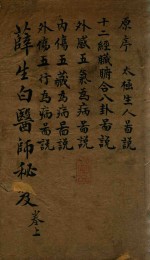 原序　太極生人啚說
十二經臟腑合八卦啚說
外感五氣為病啚說
內傷五藏為病啚說
外傷五行為病啚說
薛生白醫師秘及　卷上